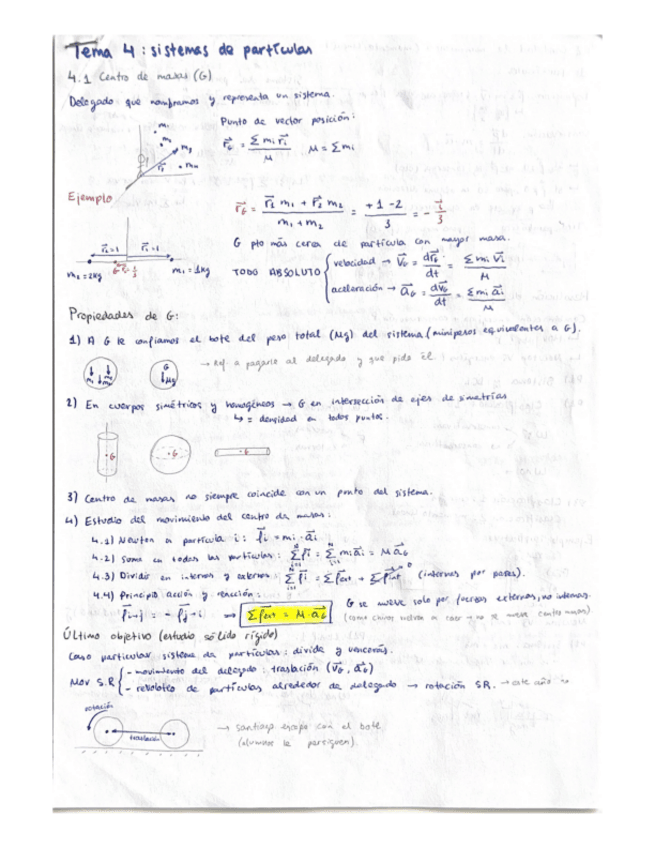 Tema 4: sistemas de partículas
4.1 Centro de masas (G)
Delegado que nombramos y representa un sistema.
Punto de vector posición:
r⃗G = Σ mi r⃗i / M   M = Σ mi
Ejemplo
r⃗G = (r⃗1 m1 + r⃗2 m2) / (m1 + m2) = (+1 -2) / 3 = - i⃗ / 3
m2 = 2kg   m1 = 1kg
G pto más cerca de partícula con mayor masa.
TODO ABSOLUTO
velocidad → V⃗G = dr⃗G / dt = Σ mi v⃗i / M
aceleración → a⃗G = dv⃗G / dt = Σ mi a⃗i / M
Propiedades de G:
1) A G le confiamos el bote del peso total (Mg) del sistema (minipesos equivalentes a G).
→ ref. a pagarle al delegado y que pida él
2) En cuerpos simétricos y homogéneos → G en intersección de ejes de simetrías
↳ = densidad en todos puntos.
G G G
3) Centro de masas no siempre coincide con un punto del sistema.
4) Estudio del movimiento del centro de masas:
4.1) Newton a partícula i: f⃗i = mi · a⃗i
4.2) Suma en todas las partículas: Σ f⃗i = Σ mi a⃗i = M a⃗G
4.3) Dividir en internas y externas: Σ f⃗i = Σ f⃗ext + Σ f⃗int = 0 (internas por pares).
4.4) Principio acción y reacción:
f⃗i→j = - f⃗j→i ⇒ Σ f⃗ext = M · a⃗G
G se mueve solo por fuerzas externas, no internas.
Último objetivo (estudio sólido rígido)
Caso particular sistema de partículas: divide y vencerás.
Mov S.R
- movimiento del delegado: traslación (v⃗G, a⃗G)
- revoloteo de partículas alrededor de delegado → rotación SR. → este año
rotación
traslación
→ santiago escapa con el bote
(alumnos le persiguen).